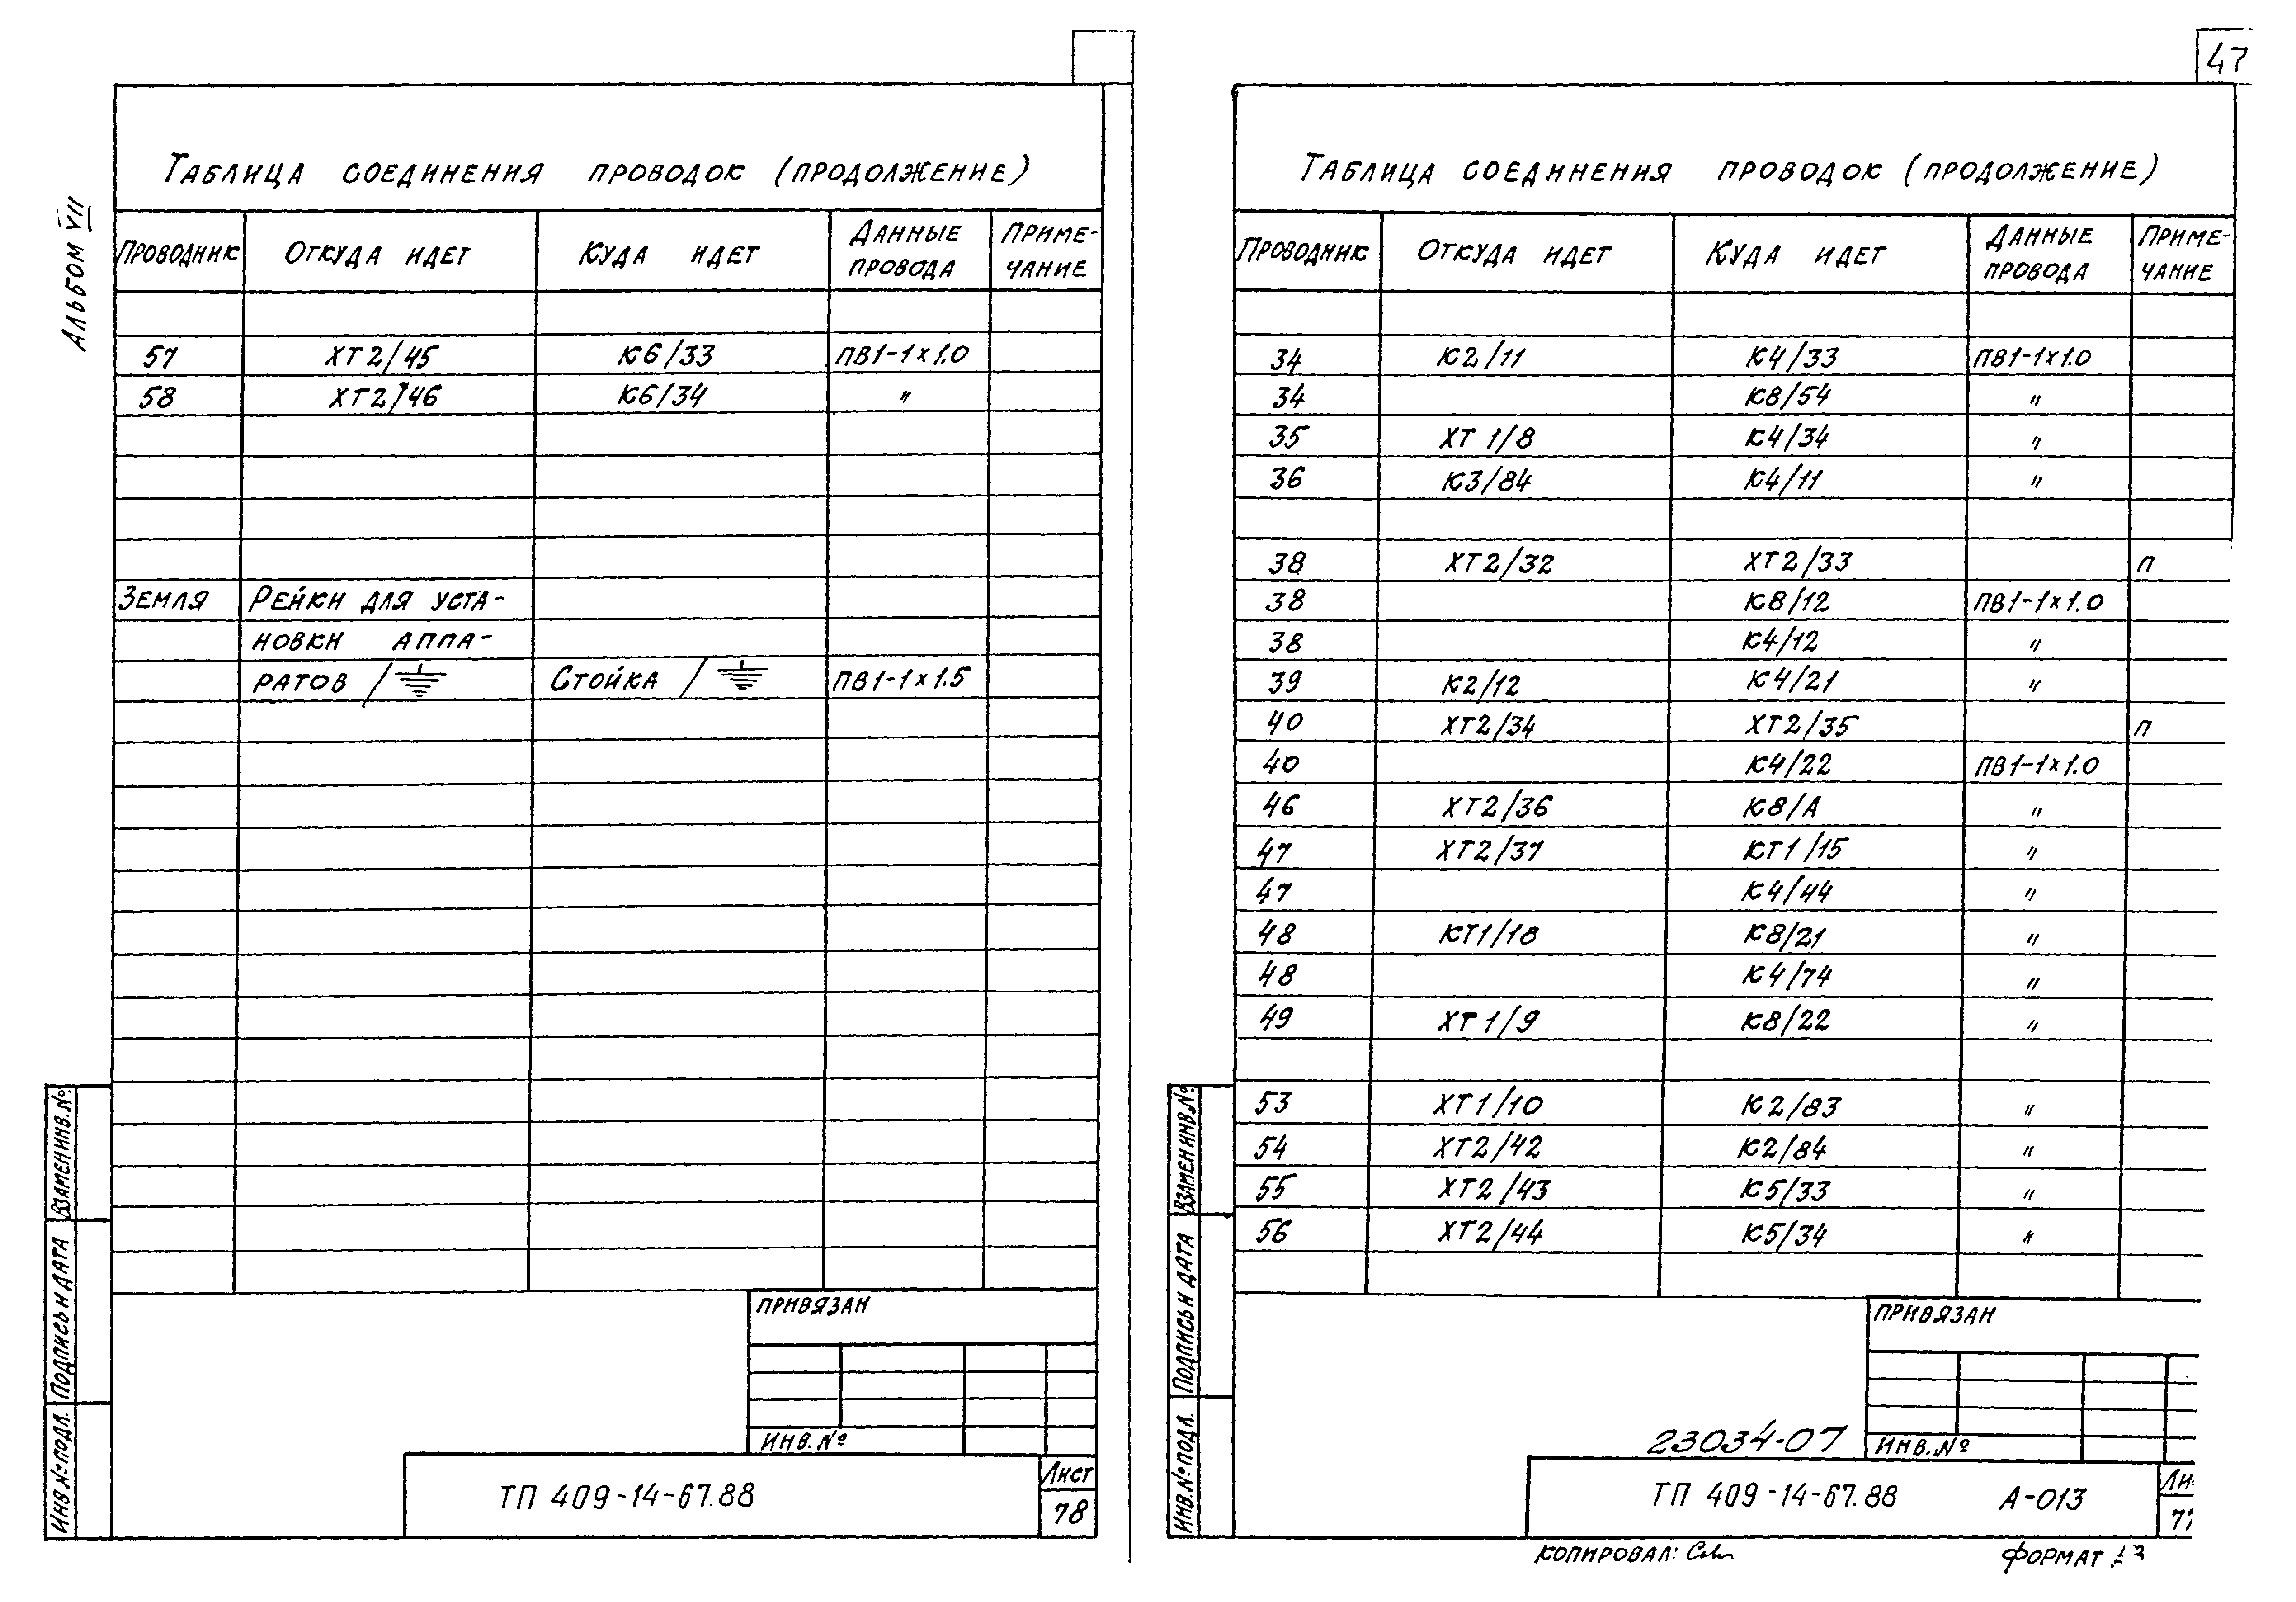 47
Альбом VII
Таблица соединения проводок (продолжение)
Проводник Откуда идет Куда идет Данные провода Приме-чание
57 ХТ2/45 К6/33 ПВ1-1×1.0
58 ХТ2/46 К6/34 "
Земля Рейки для уста-
новки аппа-
ратов / Стойка / ПВ1-1×1.5
Привязан
Инв.№
ТП 409-14-67.88
Лист
78
Взамен инв.№
Подпись и дата
Инв.№ подл.
Таблица соединения проводок (продолжение)
Проводник Откуда идет Куда идет Данные провода Приме-чание
34 К2/11 К4/33 ПВ1-1×1.0
34 К8/54 "
35 ХТ1/8 К4/34 "
36 К3/84 К4/11 "
38 ХТ2/32 ХТ2/33 П
38 К8/12 ПВ1-1×1.0
38 К4/12 "
39 К2/12 К4/21 "
40 ХТ2/34 ХТ2/35 П
40 К4/22 ПВ1-1×1.0
46 ХТ2/36 К8/А "
47 ХТ2/37 КТ1/15 "
47 К4/44 "
48 КТ1/18 К8/21 "
48 К4/74 "
49 ХТ1/9 К8/22 "
53 ХТ1/10 К2/83 "
54 ХТ2/42 К2/84 "
55 ХТ2/43 К5/33 "
56 ХТ2/44 К5/34 "
Привязан
23034-07
Инв.№
ТП 409-14-67.88 А-013
Ли
77
Взамен инв.№
Подпись и дата
Инв.№ подл.
Копировал:
Формат